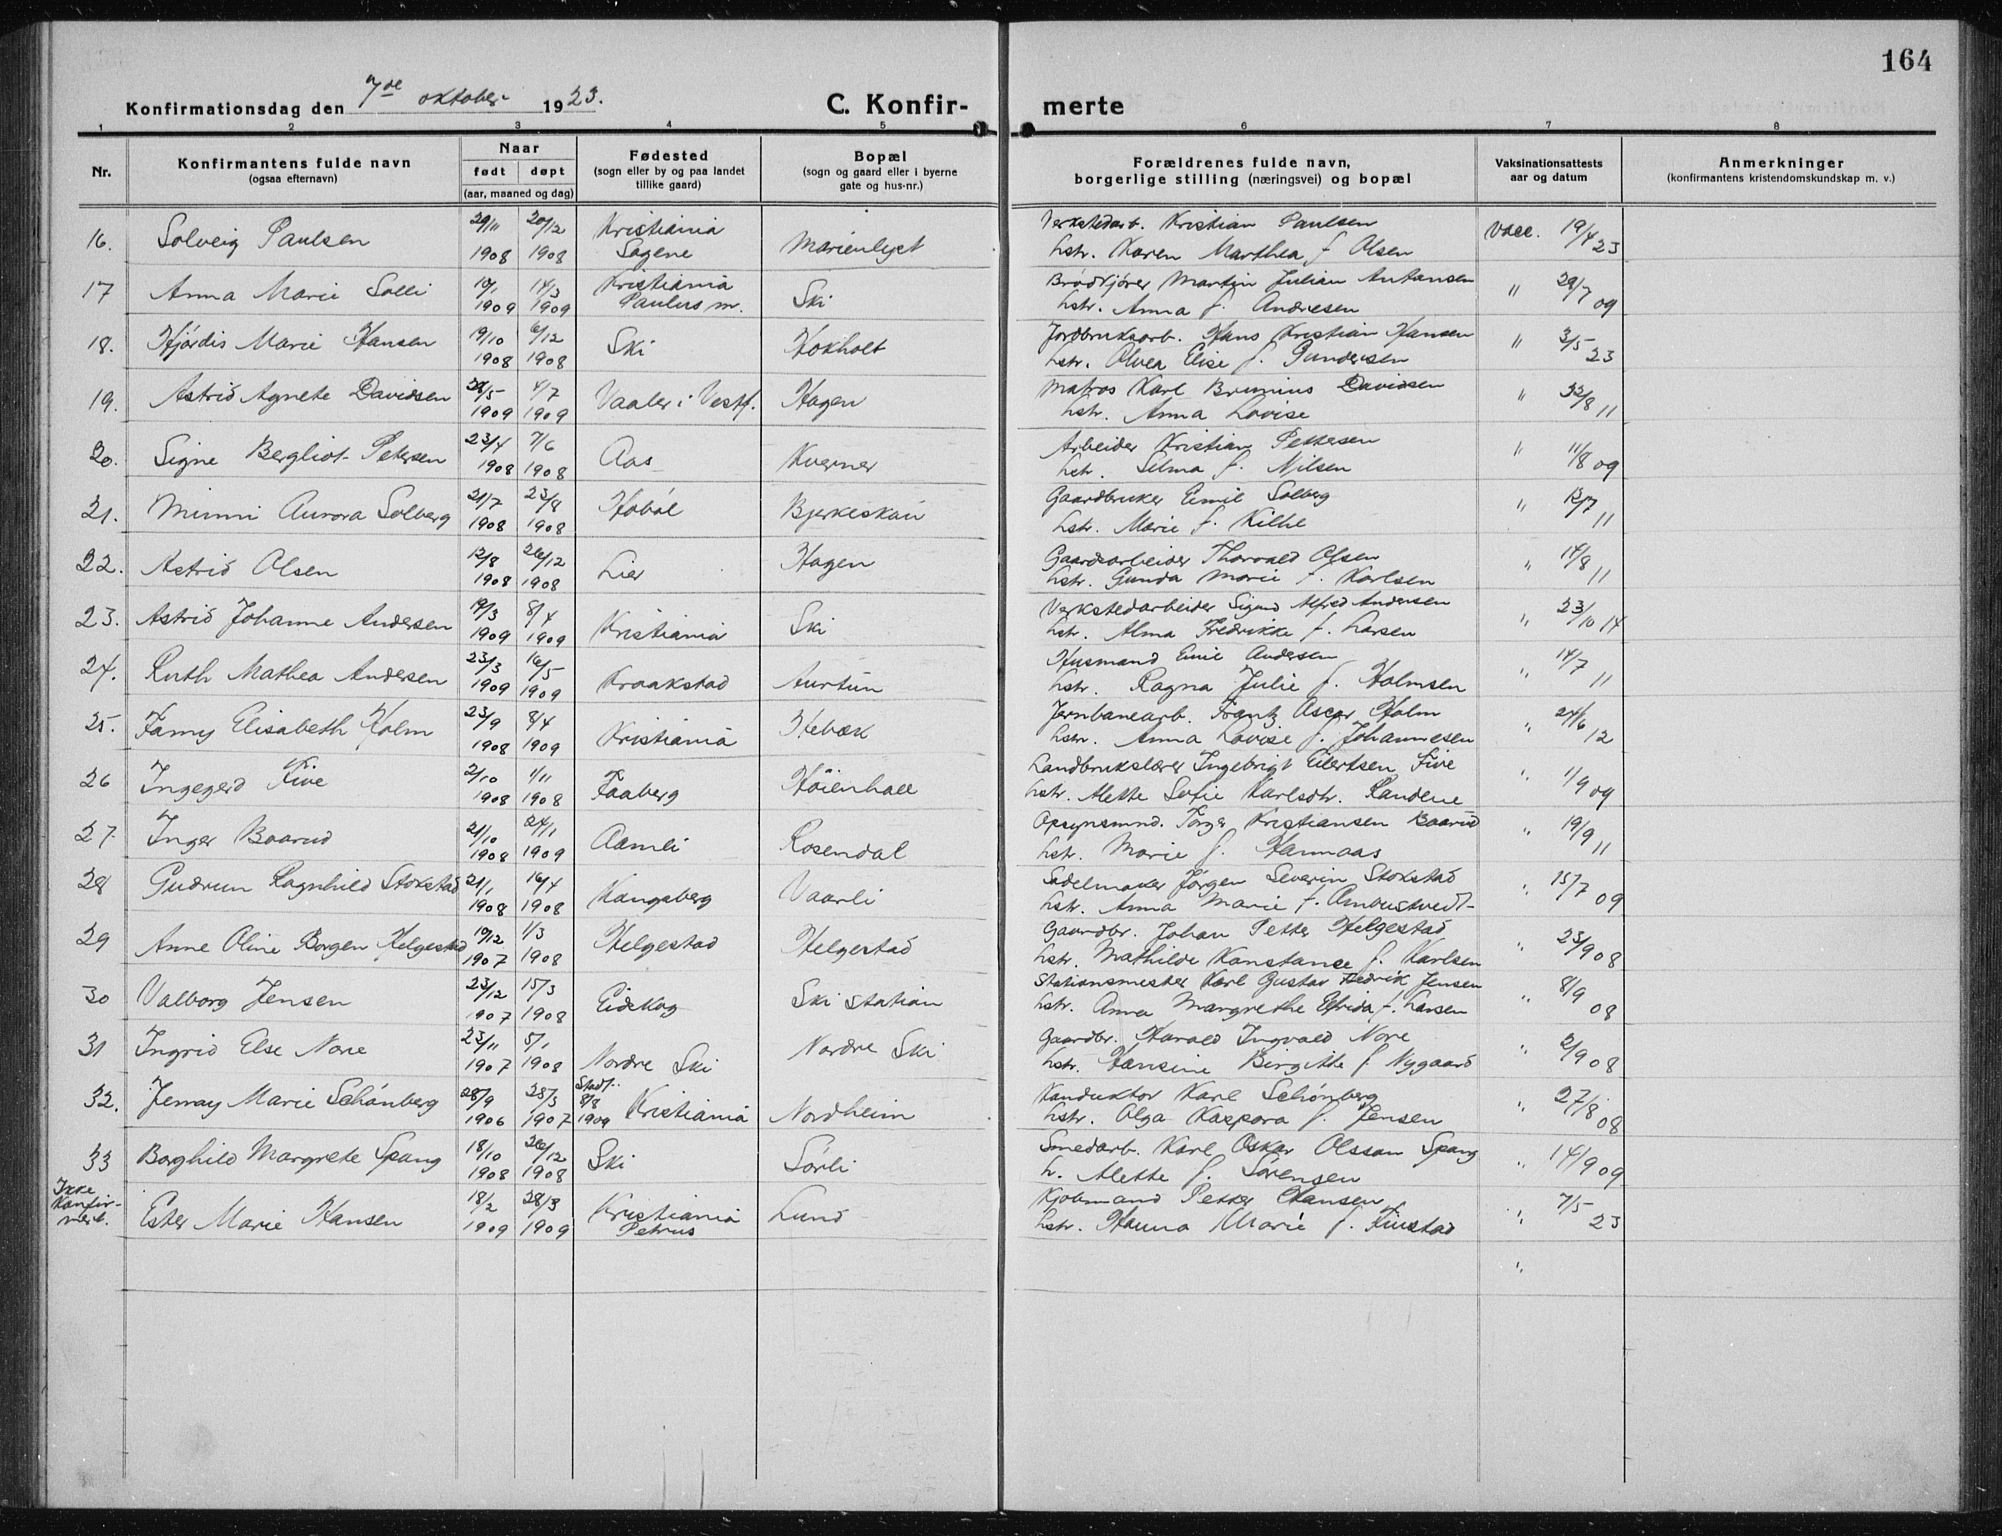 164
Konfirmationsdag den 7de oktober 1923.
C. Konfir- merte
1 2 3 4 5 6 7 8
Nr.
Konfirmantens fulde navn
(ogsaa efternavn)
Naar
født døpt
(aar, maaned og dag)
Fødested
(sogn eller by og paa landet
tillike gaard)
Bopæl
(sogn og gaard eller i byerne
gate og hus-nr.)
Forældrenes fulde navn,
borgerlige stilling (næringsvei) og bopæl
Vaksinationsattests
aar og datum
Anmerkninger
(konfirmantens kristendomskundskap m. v.)
16. Solveig Paulsen 29/11 1908 20/12 1908 Kristiania Sagene Marienlyst
Verkstedarb. Kristian Paulsen Vacc. 19/4 23
Hstr. Karen Marthea f. Olsen
17 Anna Marie Solli 10/1 1909 14/3 1909 Kristiania Paulus m. Ski
Brødkjører Martin Julian Antonsen " 29/7 09
Hstr. Anna f. Andresen
18. Hjørdis Marie Hansen 19/10 1908 6/12 1908 Ski Hokholt
Jordbruksarb. Hans Kristian Hansen " 3/5 23
Hstr. Olvea Elise f. Gundersen
19. Astrid Agnete Davidsen /5 1909 4/7 1909 Vaaler i Vestf. Hagen
Matros Karl Brunius Davidsen " /8 11
Hstr. Anna Lovise
20. Signe Bergliot Petersen 23/4 1908 7/6 1908 Aas Kverner
Arbeider Kristian Pettersen " 11/8 09
Hstr. Selma f. Nilsen
21. Minni Aurora Solberg 21/7 1908 23/8 1908 Hobøl Bjerkeskau
Gaardbruker Emil Solberg " 13/7 11
Hstr. Marie f. Kilhe
22. Astrid Olsen 12/8 1908 26/12 1908 Lier Hagen
Gaardsarbeider Thorvald Olsen " 14/8 11
Hstr. Gunda Marie f. Karlsen
23. Astrid Johanne Andersen 19/3 1909 8/4 1909 Kristiania Ski
Verkstedarbeider Sigurd Alfred Andersen " 23/10 14
Hstr. Alma Fredrikke f. Larsen
24. Ruth Mathea Andersen 23/3 1909 16/5 1909 Kraakstad Aurtun
Husmand Emil Andersen " 14/7 11
Hstr. Ragna Julie f. Holmsen
25. Fanny Elisabeth Holm 23/9 1908 8/4 1909 Kristiania Hebæk
Jernbanearb. Frantz Oscar Holm " 24/6 12
Hstr. Anna Lovise f. Johannesen
26 Ingegerd Five 2/10 1908 1/11 1908 Faaberg Høienhall
Landbrukslærer Ingebrigt Eilertsen Five " 1/9 09
Hstr. Alette Sofie Karlsdtr. Randene
27. Inger Baarud 21/10 1908 24/1 1909 Aamli Rosendal
Opsynsmnd. Torger Kristiansen Baarud " 19/9 11
Hstr. Marie f. Hannaas
28 Gudrun Ragnhild Stokstad 21/1 1908 16/4 1908 Kongsberg Vaarli
Sadelmaker Jørgen Severin Stokstad " 15/7 09
Hstr. Anna Marie f. Ambustvedt
29 Anne Oline Borgen Helgestad 19/12 1907 1/3 1908 Helgestad Helgestad
Gaardbr. Johan Petter Helgestad " 23/9 08
Hstr. Mathilde Konstanse f. Karlsen
30 Valborg Jensen 23/12 1907 15/3 1908 Eidskog Ski station
Stationsmester Karl Gustav Fredrik Jensen " 8/9 08
Hstr. Anna Margrethe Elfrida f. Larsen
31 Ingrid Else Nore 23/11 1907 5/1 1908 Nordre Ski Nordre Ski
Gaardbr. Harald Ingvald Nore " 2/9 08
Hstr. Hansine Birgitte f. Nygaard
32. Jenny Marie Schönberg 28/9 1906 28/3 1907 Stadf. 8/8 1909 Kristiania Nordheim
Konduktør Karl Schönberg " 27/8 08
Hstr. Olga Kaspara f. Jensen
33 Borghild Margrete Spang 18/10 1908 26/12 1908 Ski Sørli
Smedarb. Karl Oskar Olsson Spang " 14/9 09
H. Alette f. Sørensen
Ikke
Konfir-
mert. Ester Marie Hansen 18/2 1909 28/3 1909 Kristiania Petrus Lund
Kjøbmand Petter Hansen " 7/5 23
Hstr. Hanna Marie f. Finstad
"